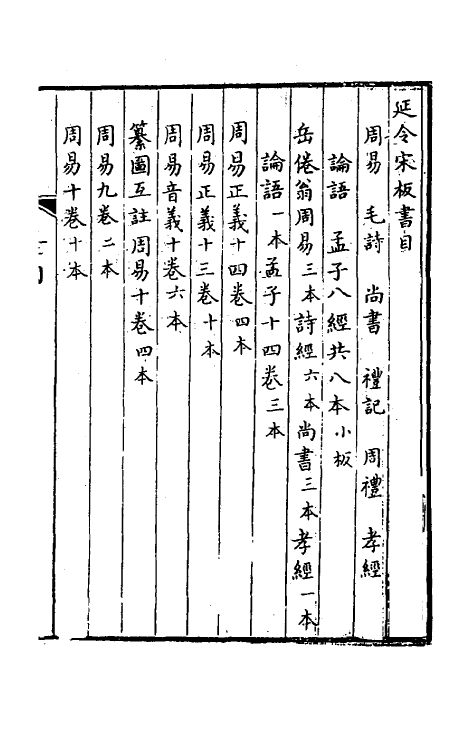 延令宋板書目
周易　毛詩　尚書　禮記　周禮　孝經
論語　孟子八經共八本小板
岳倦翁周易三本詩經六本尚書三本孝經一本
論語一本孟子十四卷三本
周易正義十四卷四本
周易正義十三卷十本
周易音義十卷六本
纂圖互註周易十卷四本
周易九卷二本
周易十卷十本